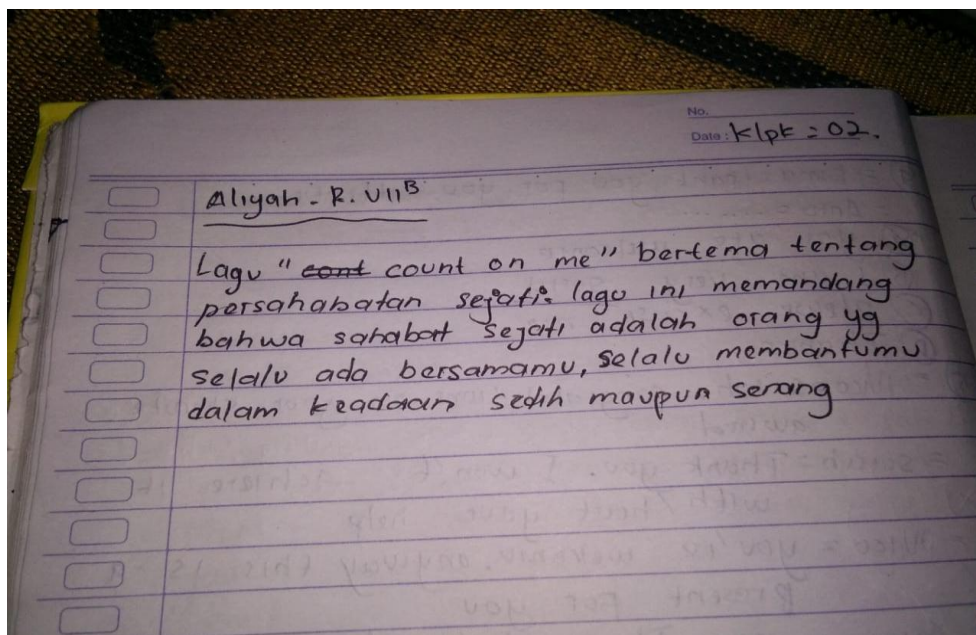 No.
Date : Klpk = 02.
Aliyah - R. VII B
Lagu " cont count on me " bertema tentang
persahabatan sejati. lagu ini memandang
bahwa sahabat sejati adalah orang yg
selalu ada bersamamu, selalu membantumu
dalam keadaan sedih maupun senang